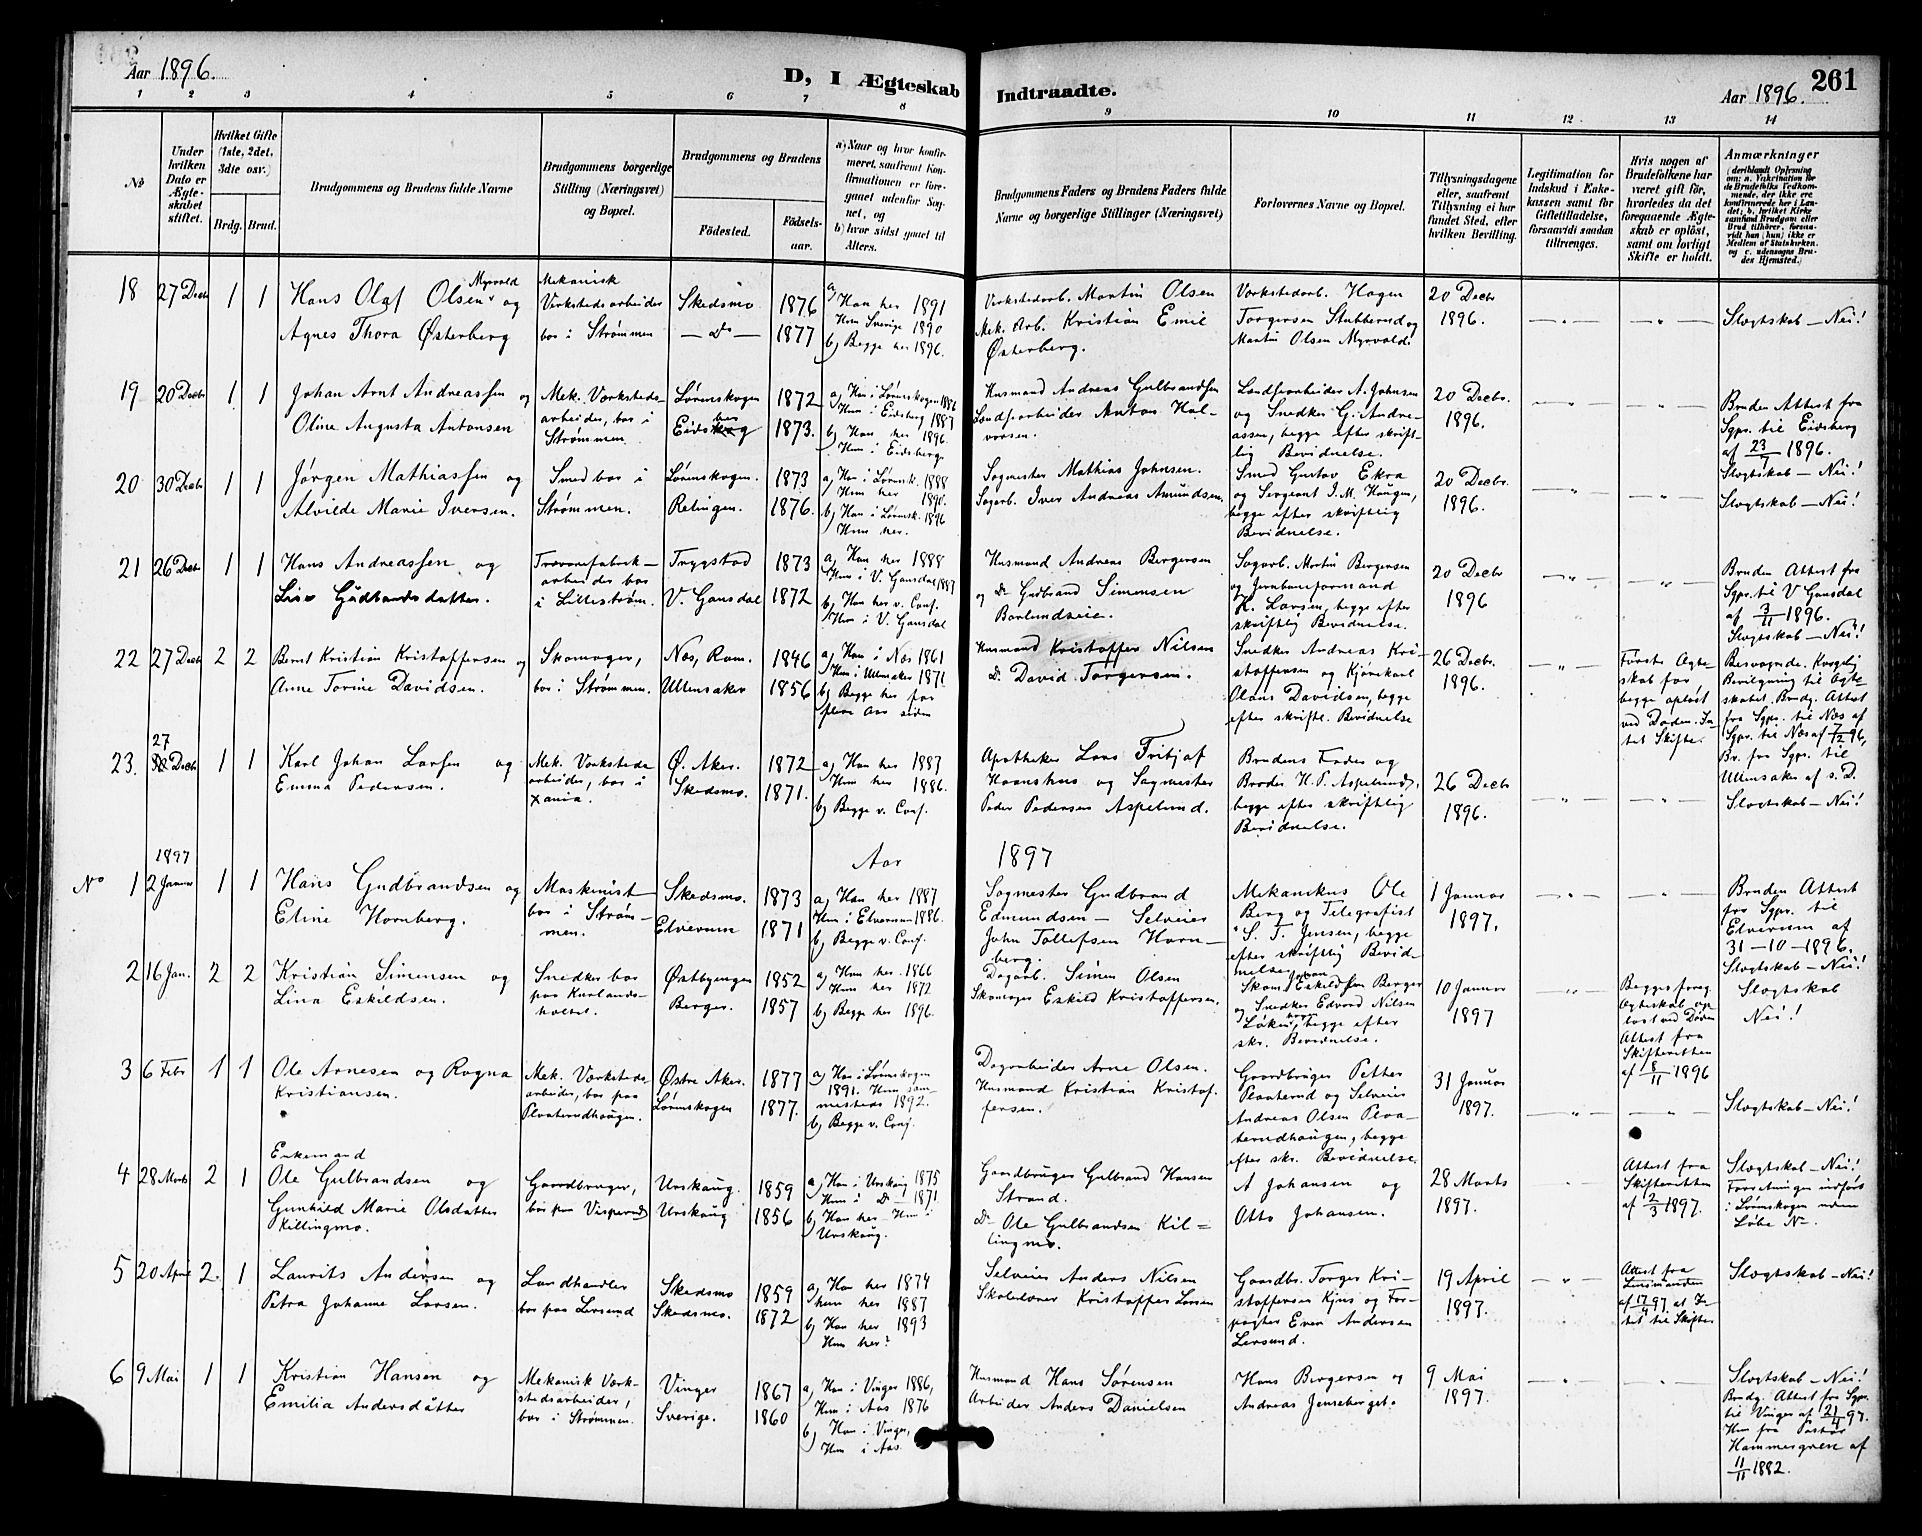 Aar 1896.
D, I Ægteskab Indtraadte.
Aar 1896.
261
1 2 3 4 5 6 7 8 9 10 11 12 13 14
No
Under hvilken Dato er Ægteskabet stiftet.
Hvilket Gifte (1ste, 2det, 3die osv.)
Brdg. Brud.
Brudgommens og Brudens fulde Navne
Brudgommens borgerlige Stilling (Næringsvei) og Bopæl.
Brudgommens og Brudens
Fødested.
Fødselsaar.
a) Naar og hvor konfirmeret, saafremt Konfirmationen er foregaaet udenfor Sognet, og
b) hvor sidst gaaet til Alters.
Brudgommens Faders og Brudens Faders fulde Navne og borgerlige Stillinger (Næringsvei)
Forlovernes Navne og Bopæl.
Tillysningsdagene eller, saafremt Tillysning ei har fundet Sted, efter hvilken Bevilling.
Legitimation for Indskud i Enkekassen samt for Giftetilladelse, forsaavidt saadan tiltrænges.
Hvis nogen af Brudefolkene har været gift før, hvorledes da det foregaaende Ægteskab er opløst, samt om lovligt Skifte er holdt.
Anmærkninger
18 27 Decbr 1 1
Hans Olaf Olsen Myrvold og
Agnes Thora Østerberg
Mekanisk
Værkstedsarbeider
bor i Strømmen
Skedsmo 1876
— Do — 1877
a) Han her 1891
Hun Sverige 1890
b) Begge her 1896.
Værkstedarb. Martin Olsen
Mek. Arb. Kristian Emil
Østerberg.
Værkstedarb. Hagen
Torgersen Stubberud og
Martin Olsen Myrvold.
20 Decbr
1896.
Slægtskab – Nei!
19 20 Decbr 1 1
Johan Arnt Andreassen og
Oline Augusta Antonsen
Mek. Værkstedsarbeider, bor i
Strømmen
Lørenskogen 1872
Eidsberg 1873.
a) Han i Lørenskogen 1886
Hun i Eidsberg 1887
b) Han her 1896.
Hun i Eidsberg.
Husmand Andreas Gulbrandsen
Landsarbeider Anton Halvorsen.
Landsarbeider A. Johnsen
og Snedker G. Andreassen, begge efter skriftlig Bevidnelse.
20 Decbr.
1896.
Bruden Attest fra
Sgpr. til Eidsberg
af 23/7 1896.
Slægtskab – Nei!
20 30 Decbr 1 1
Jørgen Mathiassen og
Alvilde Marie Iversen.
Smed bor i
Strømmen.
Lørenskogen. 1873
Relingen. 1876.
a) Han i Lørensk. 1888
Hun her 1890.
b) Han i Lørensk. 1896
Hun her.
Sagmester Mathias Johnsen.
Sagarb. Iver Andreas Amundsen.
Smed Gustav Ekra
og Sergeant I. M. Haugen,
begge efter skriftlig
Bevidnelse.
20 Decbr
1896.
Slægtskab – Nei!
21 26 Decbr 1 1
Hans Andreassen og
Lise Gudbrandsdatter.
Trævarefabrikarbeider bor
i Lillestrøm.
Trygstad 1873
V. Gausdal 1872
a) Han her 1888
Hun i V. Gausdal 1887
b) Han her v. Conf.
Hun i V. Gausdal
Husmand Andreas Bergersen
og Do Gudbrand Simensen
Sagarb. Martin Bergersen
og Jernbaneformand
H. Larsen, begge efter
skriftlig Bevidnelse.
20 Decbr
1896
Bruden Attest fra
Sgpr. til V Gausdal
af 3/11 1896.
Slægtskab – Nei!
22 27 Decbr 2 2
Bernt Kristian Kristoffersen og
Anne Torine Davidsen.
Skomager,
bor i Strømmen.
Næs, Rom. 1846
Ullensaker 1856
a) Han i Næs 1861
Hun i Ullensaker 1871.
b) Begge her for
flere Aar siden
Husmand Kristoffer Nilsen
Do David Torgersen.
Snedker Andreas Kristoffersen og Kjørekarl
Olaus Davidsen, begge
efter skriftl. Bevidnelse
26 Decbr.
1896.
Første Ægteskab for
begge opløst
ved Døden. Intet Skifte.
Besvogrede. Kongelig
Bevilgning til Ægteskabet. Brudg. Attest
fra Sgpr. til Næs af 7/12 96,
Br. fra Sgpr. til
Ullensaker af s. D.
23. 27 Decbr 1 1
Karl Johan Larsen og
Emma Pedersen.
Mek. Værkstedsarbeider, bor i
Xania.
Ø. Aker. 1872
Skedsmo. 1871.
a) Han her 1887
Hun her 1886.
b) Begge v. Conf.
Apotheker Lars Fritjof
Haanshus og Sagmester
Peder Pedersen Aspelund.
Brudens Fader og
Broder H. P. Aspelund,
begge efter skriftlig
Bevidnelse.
26 Decbr
1896.
Slægtskab – Nei!
Aar 1897
1897
No 1 2 Januar 1 1
Hans Gudbrandsen og
Eline Hornberg.
Maskinist
bor i Strømmen.
Skedsmo. 1873
Elverum 1871
a) Han her 1887
Hun i Elverum 1886.
b) Begge v. Conf.
Sagmester Gudbrand
Edmundsen – Selveier
John Tollefsen Hornberg.
Mekanikus Ole
Berg og Telegrafist
S. T. Jensen, begge
efter skriftlig Bevidnelse.
1 Januar
1897.
Bruden Attest
fra Sgpr. til
Elverum af
31-10-1896.
Slægtskab – Nei!
2 16 Jan. 2 2
Kristian Simensen og
Lina Eskildsen.
Snedker bor
paa Kurlandsholtet.
Østbyengen 1852
Berger. 1857
a) Han her 1866
Hun her 1872
b) Begge her 1896.
Dagarb. Simen Olsen
Skomager Eskild Kristoffersen.
Skom. Johan Eskildsen Berger
og Snedker Edvard Nilsen
Løken, begge efter
skr. Bevidnelse.
10 Januar
1897
Begges foreg.
Ægteskab opløst ved Døden
Attest fra
Skifteretten
af 8/11 1896
Slægtskab
Nei!
3 6 Febr 1 1
Ole Arnesen og Ragna
Kristiansen.
Mek. Værkstedsarbeider, bor paa
Plaaterudhaugen.
Østre Aker. 1877
Lørenskogen 1877.
a) Han i Lørenskogen
1891. Hun sammesteds 1892.
b) Begge v. Conf.
Dagarbeider Arne Olsen.
Husmand Kristian Kristoffersen.
Gaardbruger Petter
Plaaterud og Selveier
Andreas Olsen Plaaterudhaugen, begge
efter skr. Bevidnelse.
31 Januar
1897.
Slægtskab – Nei!
4 28 Marts 2 1
Enkemand
Ole Gulbrandsen og
Gunhild Marie Olsdatter
Killingmo.
Gaardbruger,
bor paa Visperud
Urskaug. 1859
Urskaug 1856
a) Han i Urskaug 1875
Hun i Do – 1871.
b) Han her – Hun i
Urskaug.
Gaardbruger Gulbrand Hansen
Strand.
Do Ole Gulbrandsen Killingmo.
A Johansen og
Otto Johansen.
28 Marts
1897.
Attest fra
Skifteretten
af 2/3 1897.
Slægtskab – Nei!
Forretningen indført
i Lørenskogen uden
Løbe No.
5 20 April 2. 1
Laurits Andersen og
Petra Johanne Larsen.
Landhandler
bor paa Leirsund
Skedsmo 1859
Skedsmo. 1872
a) Han her 1874
hun her 1887
b) Han her 1893
Hun her?
Selveier Anders Nilsen
Skolelærer Kristoffer Larsen
Gaardbr. Torger Kristoffersen Kjus og Forpagter Even Andersen
Leirsund.
19 April
1897.
Attest fra
Lensmanden
af 17/4 97 at Intet til Skifte
Slægtskab – Nei!
6 9 Mai 1 1
Kristian Hansen og
Emilia Andersdatter
Mekanisk Værkstedsarbeider,
bor i Strømmen.
Vinger 1867
Sverige. 1860
a) Han i Vinger 1886,
Hun i Aas 1876
b) Han i Vinger,
Hun i Aas.
Husmand Hans Sørensen
Arbeider Anders Danielsen
Hans Bergersen og
Andreas Jenseberget.
9 Mai
1897.
Slægtskab – Nei!
Brudg. Attest fra Sgpr.
til Vinger af 21/4 97.
Hun fra Pastor
af
11/11 1882.